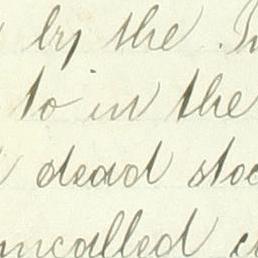 by the
to in the
dead stoc
uncalled